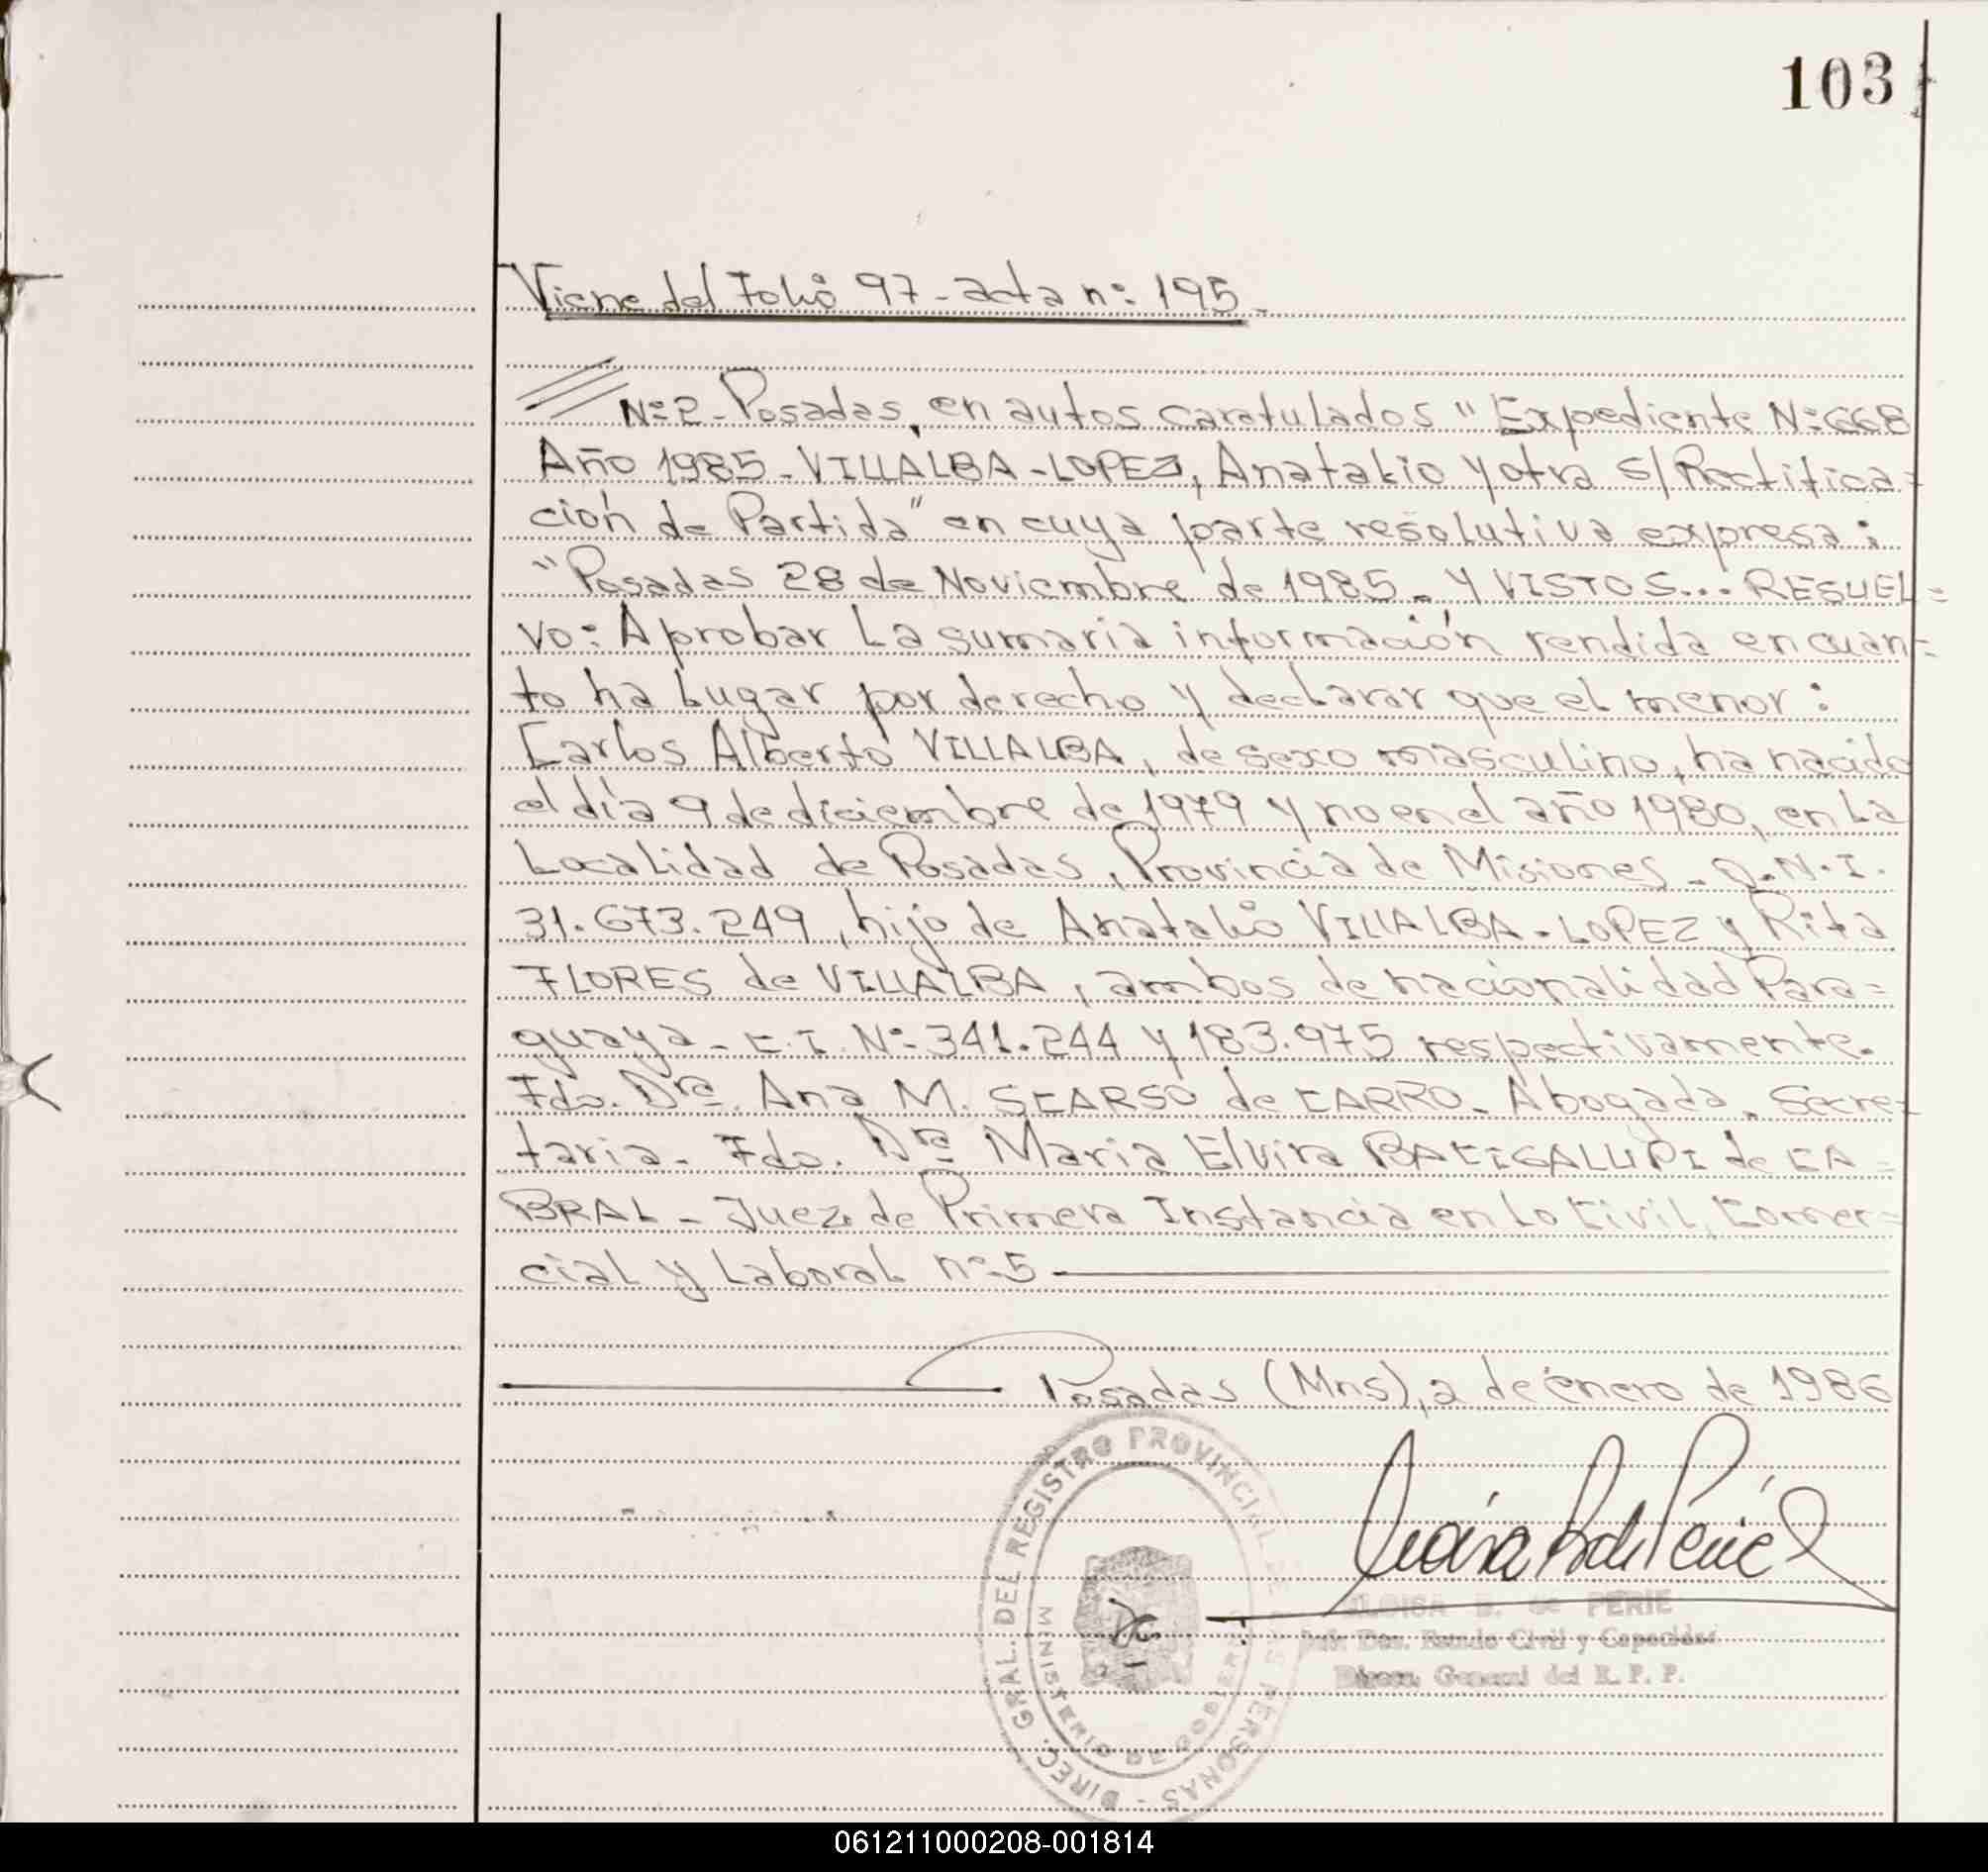 103
Viene del Folio 97 - acta nº 195 -
Nº 2 - Posadas, en autos caratulados "Expediente Nº 668
Año 1985 - VILLALBA - LOPEZ, Anatalio y otra S/ Rectifica=
ción de Partida" en cuya parte resolutiva expresa:
"Posadas 28 de Noviembre de 1985 - Y VISTOS... RESUEL=
VO: Aprobar la sumaria información rendida en cuan=
to ha lugar por derecho y declarar que el menor:
Carlos Alberto VILLALBA, de sexo masculino, ha nacido
el día 9 de diciembre de 1979 y no en el año 1980, en la
Localidad de Posadas, Provincia de Misiones - D.N.I.
31.673.249, hijo de Anatalio VILLALBA - LOPEZ y Rita
FLORES de VILLALBA, ambos de nacionalidad Para=
guaya - C.I. Nº 341.244 y 183.975 respectivamente.
Fdo. Dra. Ana M. SCARSO de CARRO - Abogada - Secre=
taria - Fdo. Dra Maria Elvira BACIGALUPI de CA=
BRAL - Juez de Primera Instancia en lo Civil, Comer=
cial y Laboral nº 5
Posadas (Mns), 2 de enero de 1986
DIREC. GRAL. DEL REGISTRO PROVINCIAL DE LAS PERSONAS -
MINISTERIO DE GOBIERNO
ELOISA B. de PERIE
Jefe Dto. Estado Civil y Capacidad
Direcc. General del R. P. P.
061211000208-001814